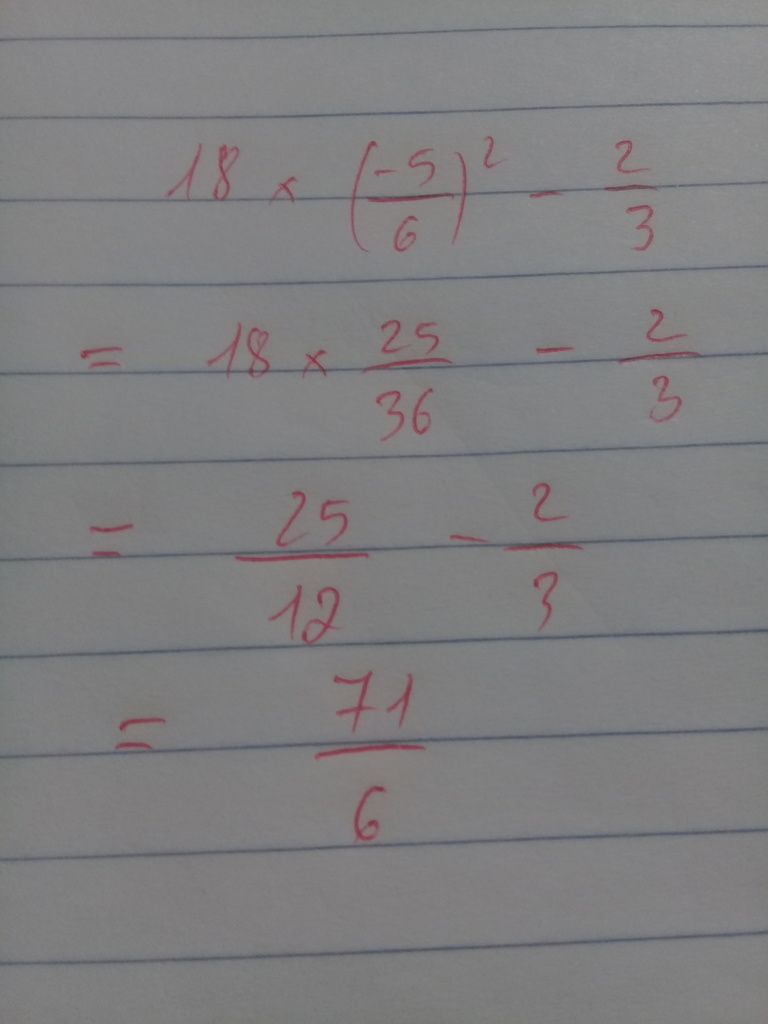 18 × (-5/6)² - 2/3
= 18 × 25/36 - 2/3
= 25/12 - 2/3
= 71/6